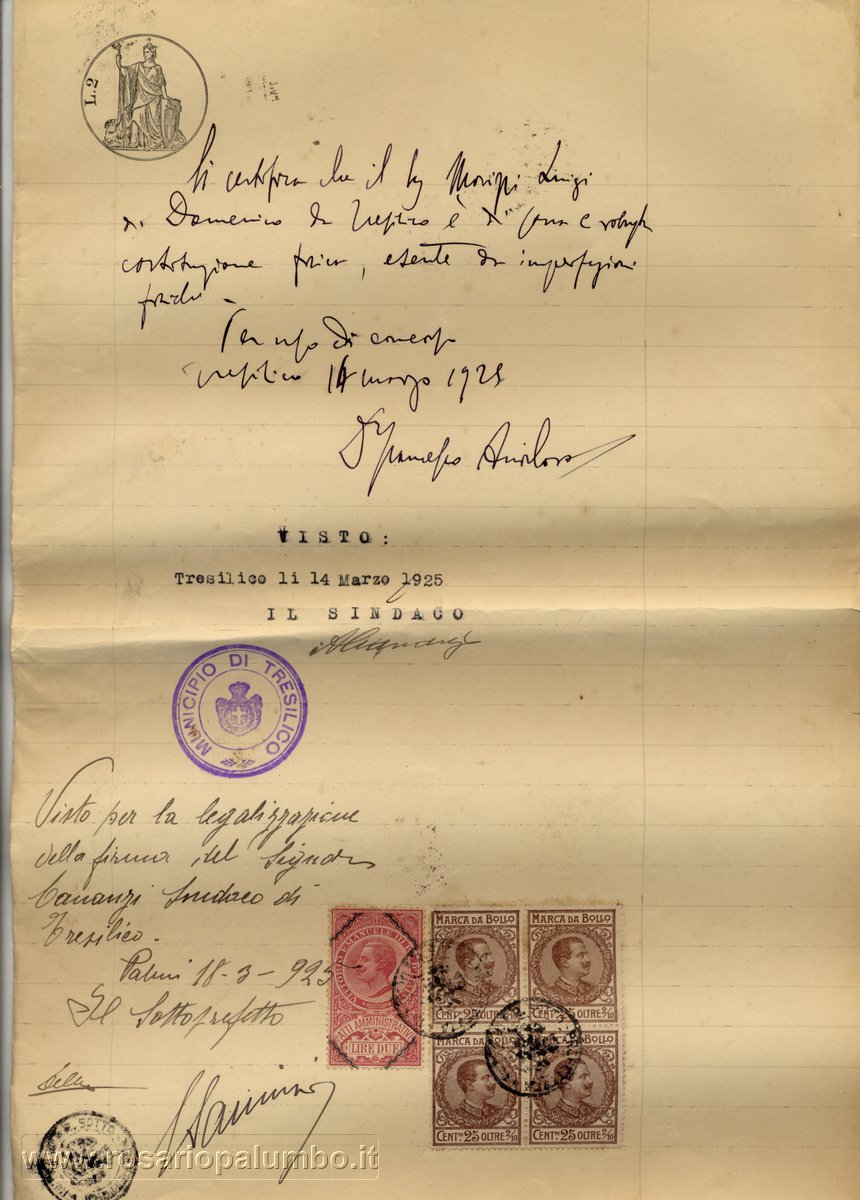 L. 2
Si certifica che il Sig Morizzi Luigi
di Domenico da Tresilico è di sana e robusta
costituzione fisica, esente da imperfezioni
fisiche -
Per uso di concorso
Tresilico 14 marzo 1925
Dr Francesco
VISTO:
Tresilico li 14 Marzo 1925
IL SINDACO
MUNICIPIO DI TRESILICO
Visto per la legalizzazione
della firma del Signor
Cananzi Sindaco di
Tresilico.
Palmi 18-3-925
Il Sottoprefetto
VITTORIO EMANUELE III
ATTI AMMINISTRATIVI
LIRE DUE
MARCA DA BOLLO
CENT.mi 25 OLTRE 2/10
MARCA DA BOLLO
CENT.mi 25 OLTRE 2/10
MARCA DA BOLLO
CENT.mi 25 OLTRE 2/10
MARCA DA BOLLO
CENT.mi 25 OLTRE 2/10
www.rosariopalumbo.it